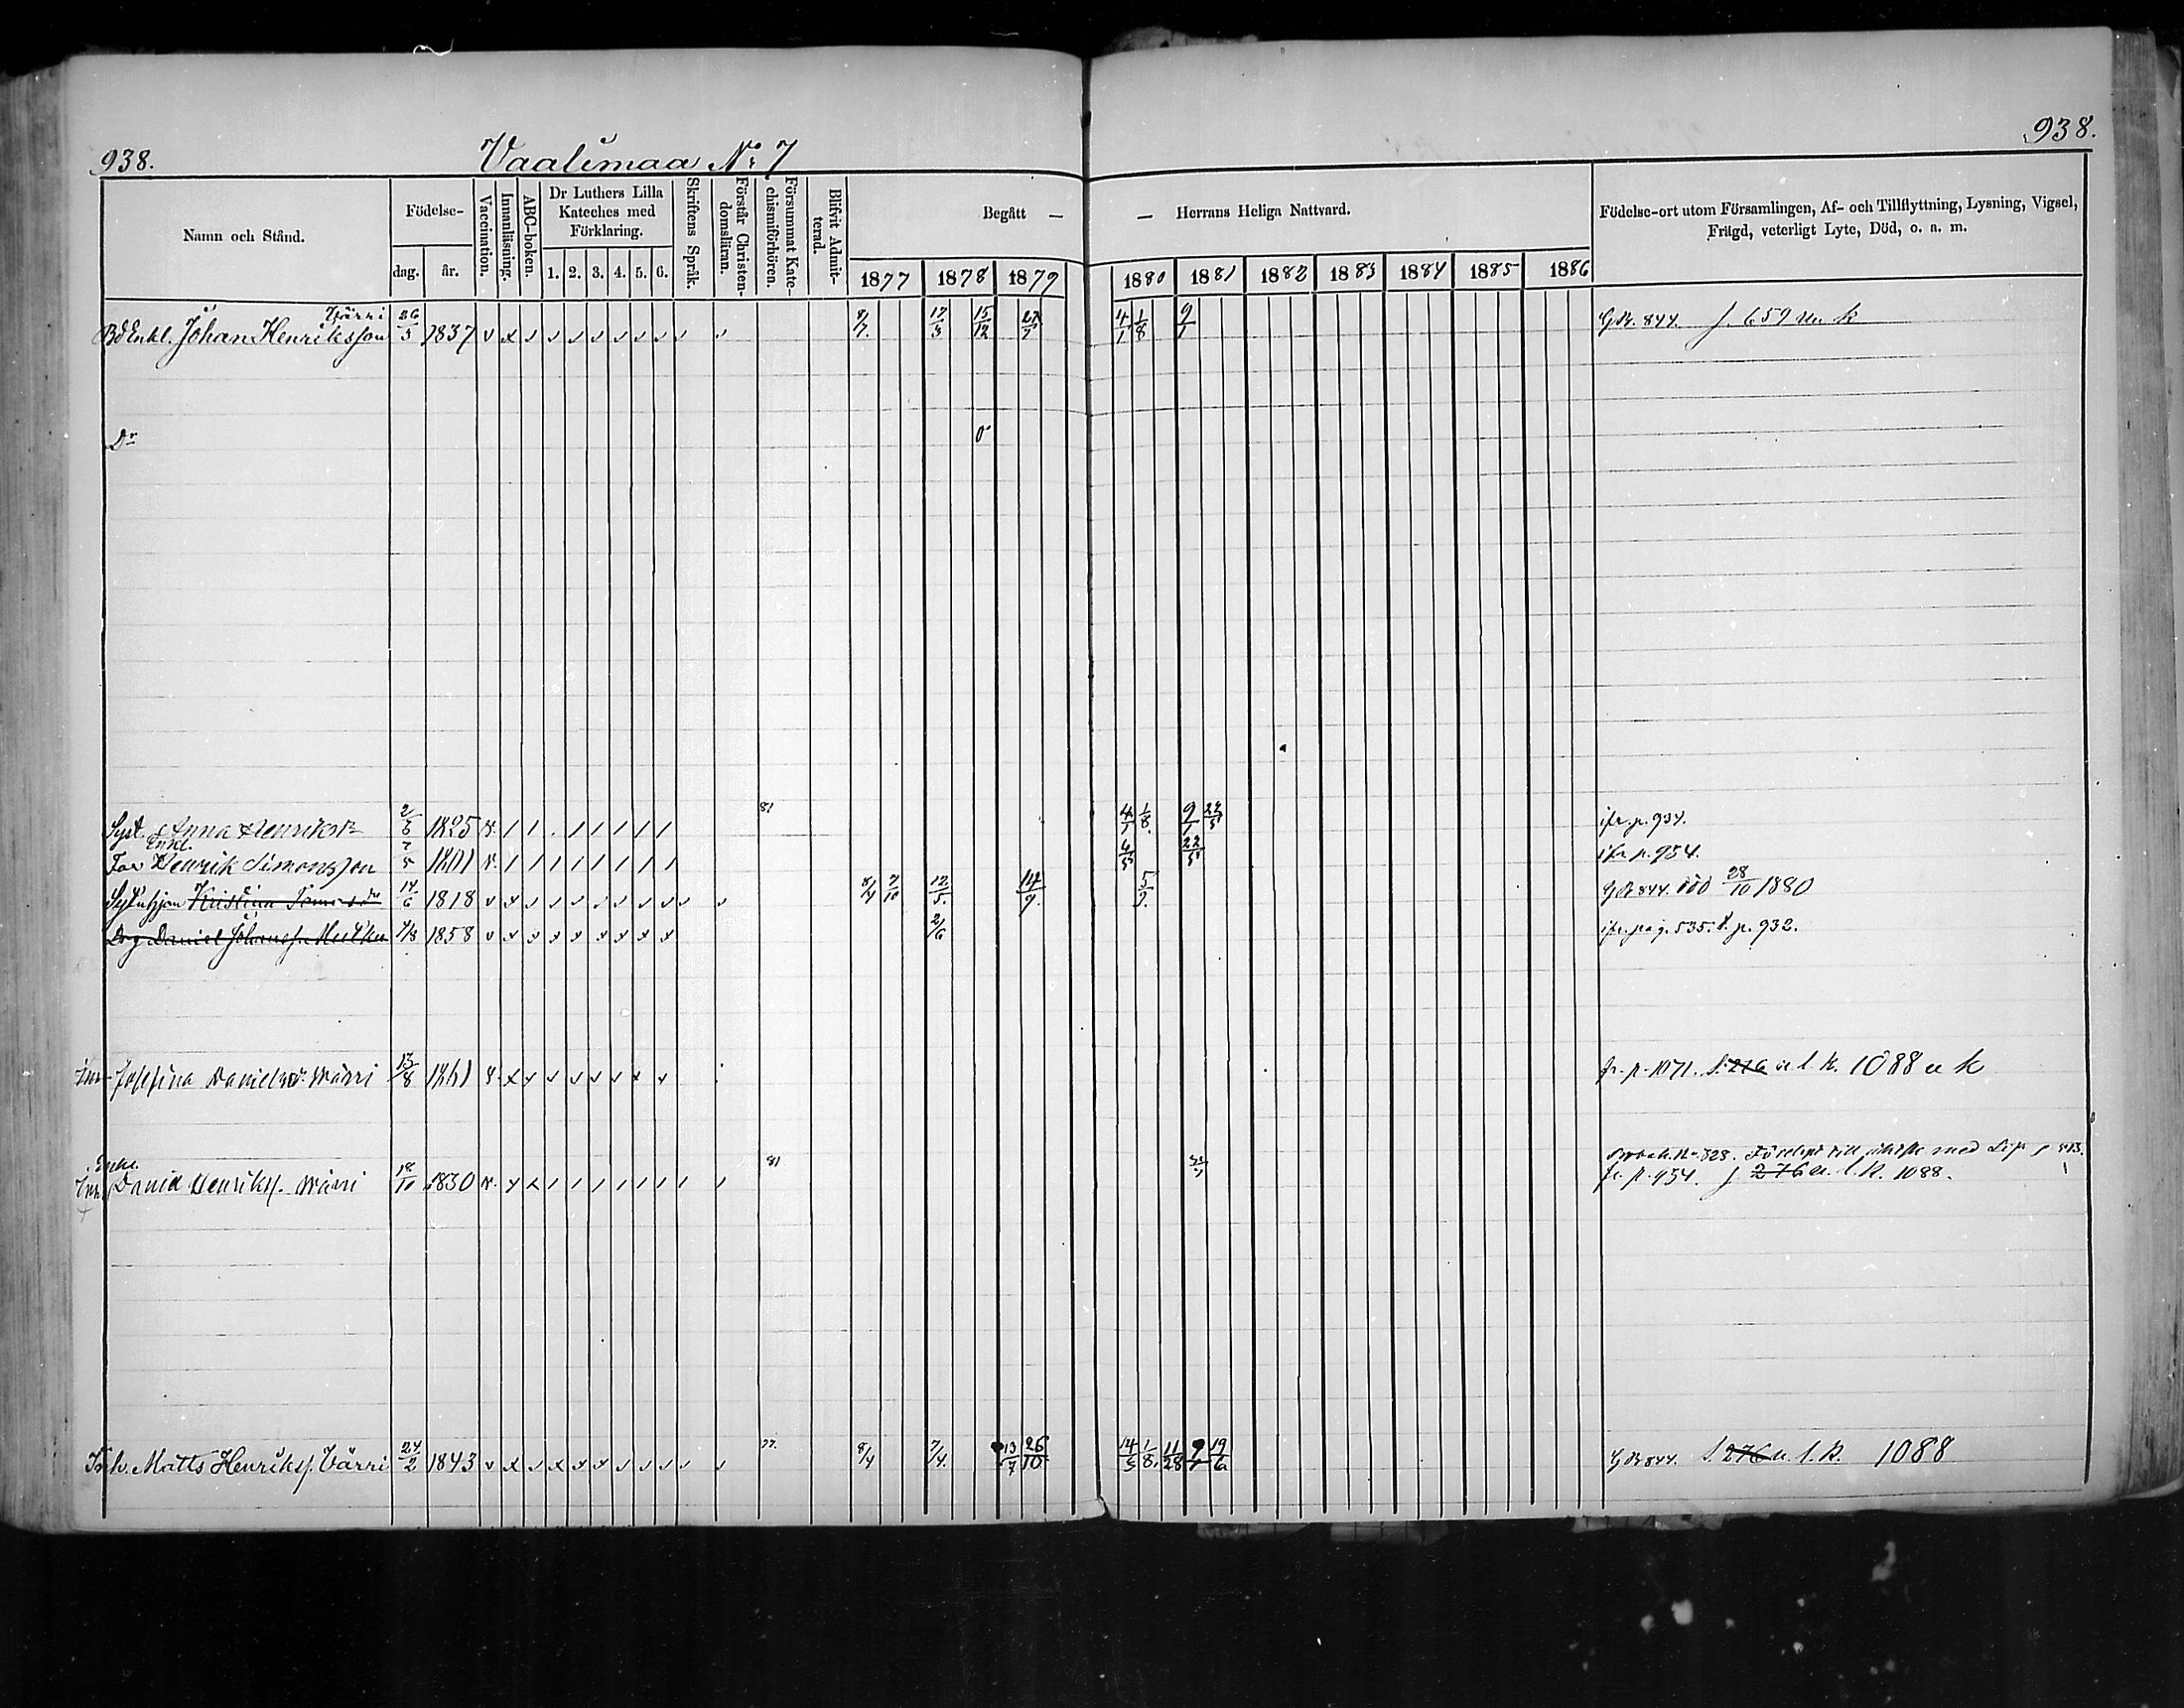 938.
Vaalimaa No 7
938.
Namn och Stånd.
Födelse-
dag. år.
Vaccination.
Innanläsning.
ABC-boken.
Dr Luthers Lilla
Kateches med
Förklaring.
1. 2. 3. 4. 5. 6.
Skriftens Språk.
Förstår Christen-
domsläran.
Försummat Kate-
chismiförhören.
Blifvit Admit-
terad.
Begått —
— Herrans Heliga Nattvard.
1877 1878 1879 1880 1881 1882 1883 1884 1885 1886
Födelse-ort utom Församlingen, Af- och Tillflyttning, Lysning, Vigsel,
Frägd, veterligt Lyte, Död, o. a. m.
Värri
Bd Enkl. Johan Henriksson 26/5 1837 8/7. 17/3 15/12 27/7 4/1 1/8 9/1 G Br. 844. f. 659 u k
Dr
Syst. Anna Henriksdr 2/6 1825 v. 81 4/1 1/8. 9/1 22/5 ifr. p. 934.
Enkl.
Far Henrik Simonsson 7/5 1801 v. 4/5 22/5 ifr p. 954.
Kristina 14/6 1818 8/4 7/10 12/5. 14/9. 5/9. G Br 844. död 28/10 1880
Drg Daniel Johanss. 4/8 1858 2/6 ifr. pag. 535. p. 932.
Inh Josefina Danielsdr. Wärri 13/8 1861 fr. p. 1071. f. 276 u. l. k. 1088 u k
Enkl.
Inh. David Henrikss. Wärri 18/10 1830 v. 81 fr. p. 954. f. 276 u. l. k. 1088.
Inh. Matts Henrikss. Värri 24/2 1843 77. 8/4 7/4. 13/7 26/10 14/5 1/8. 11/28 9/1 19/6 G Br 844. f. 276 u. l. k. 1088